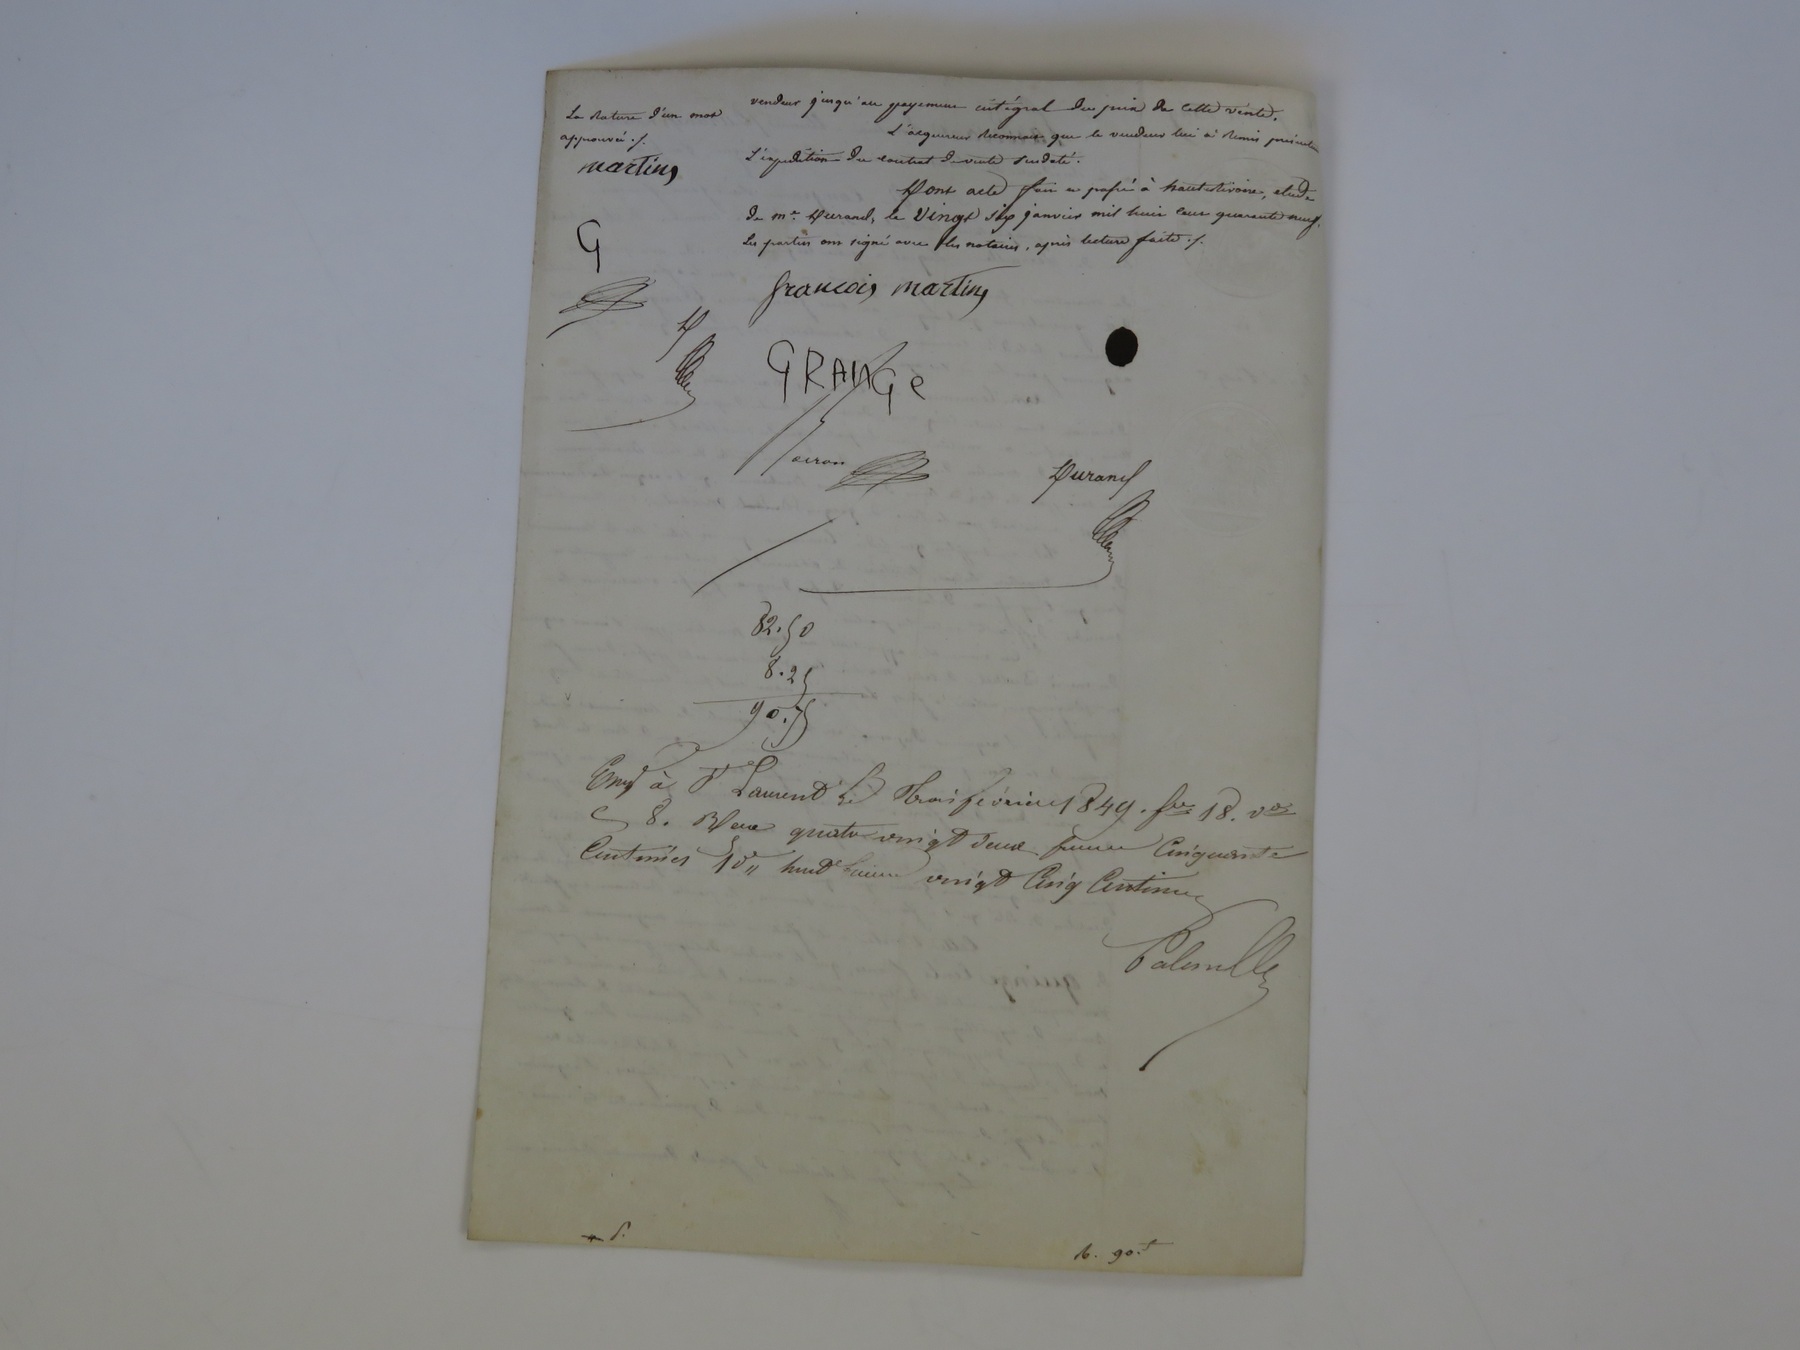 La rature d'un mot
approuvée ./.
martin
G
D
vendeur jusqu'au payement intégral du prix de cette vente.
L'acquereur reconnait que le vendeur lui a remis présentement
l'expédition du contrat de vente susdaté.
Dont acte fait et passé à hauterivoire, etude
de me. Durand, le vingt six janvier mil huit cent quarante neuf.
Les parties ont signé avec les notaires, après lecture faite ./.
françois martin
GRANGe
Durand
82.50
8.25
90.75
Enregé à St Laurent le trois février 1849. fo 18. vo
C 8. Reçu quatre vingt deux francs Cinquante
Centimes 10e huit francs vingt Cinq Centimes